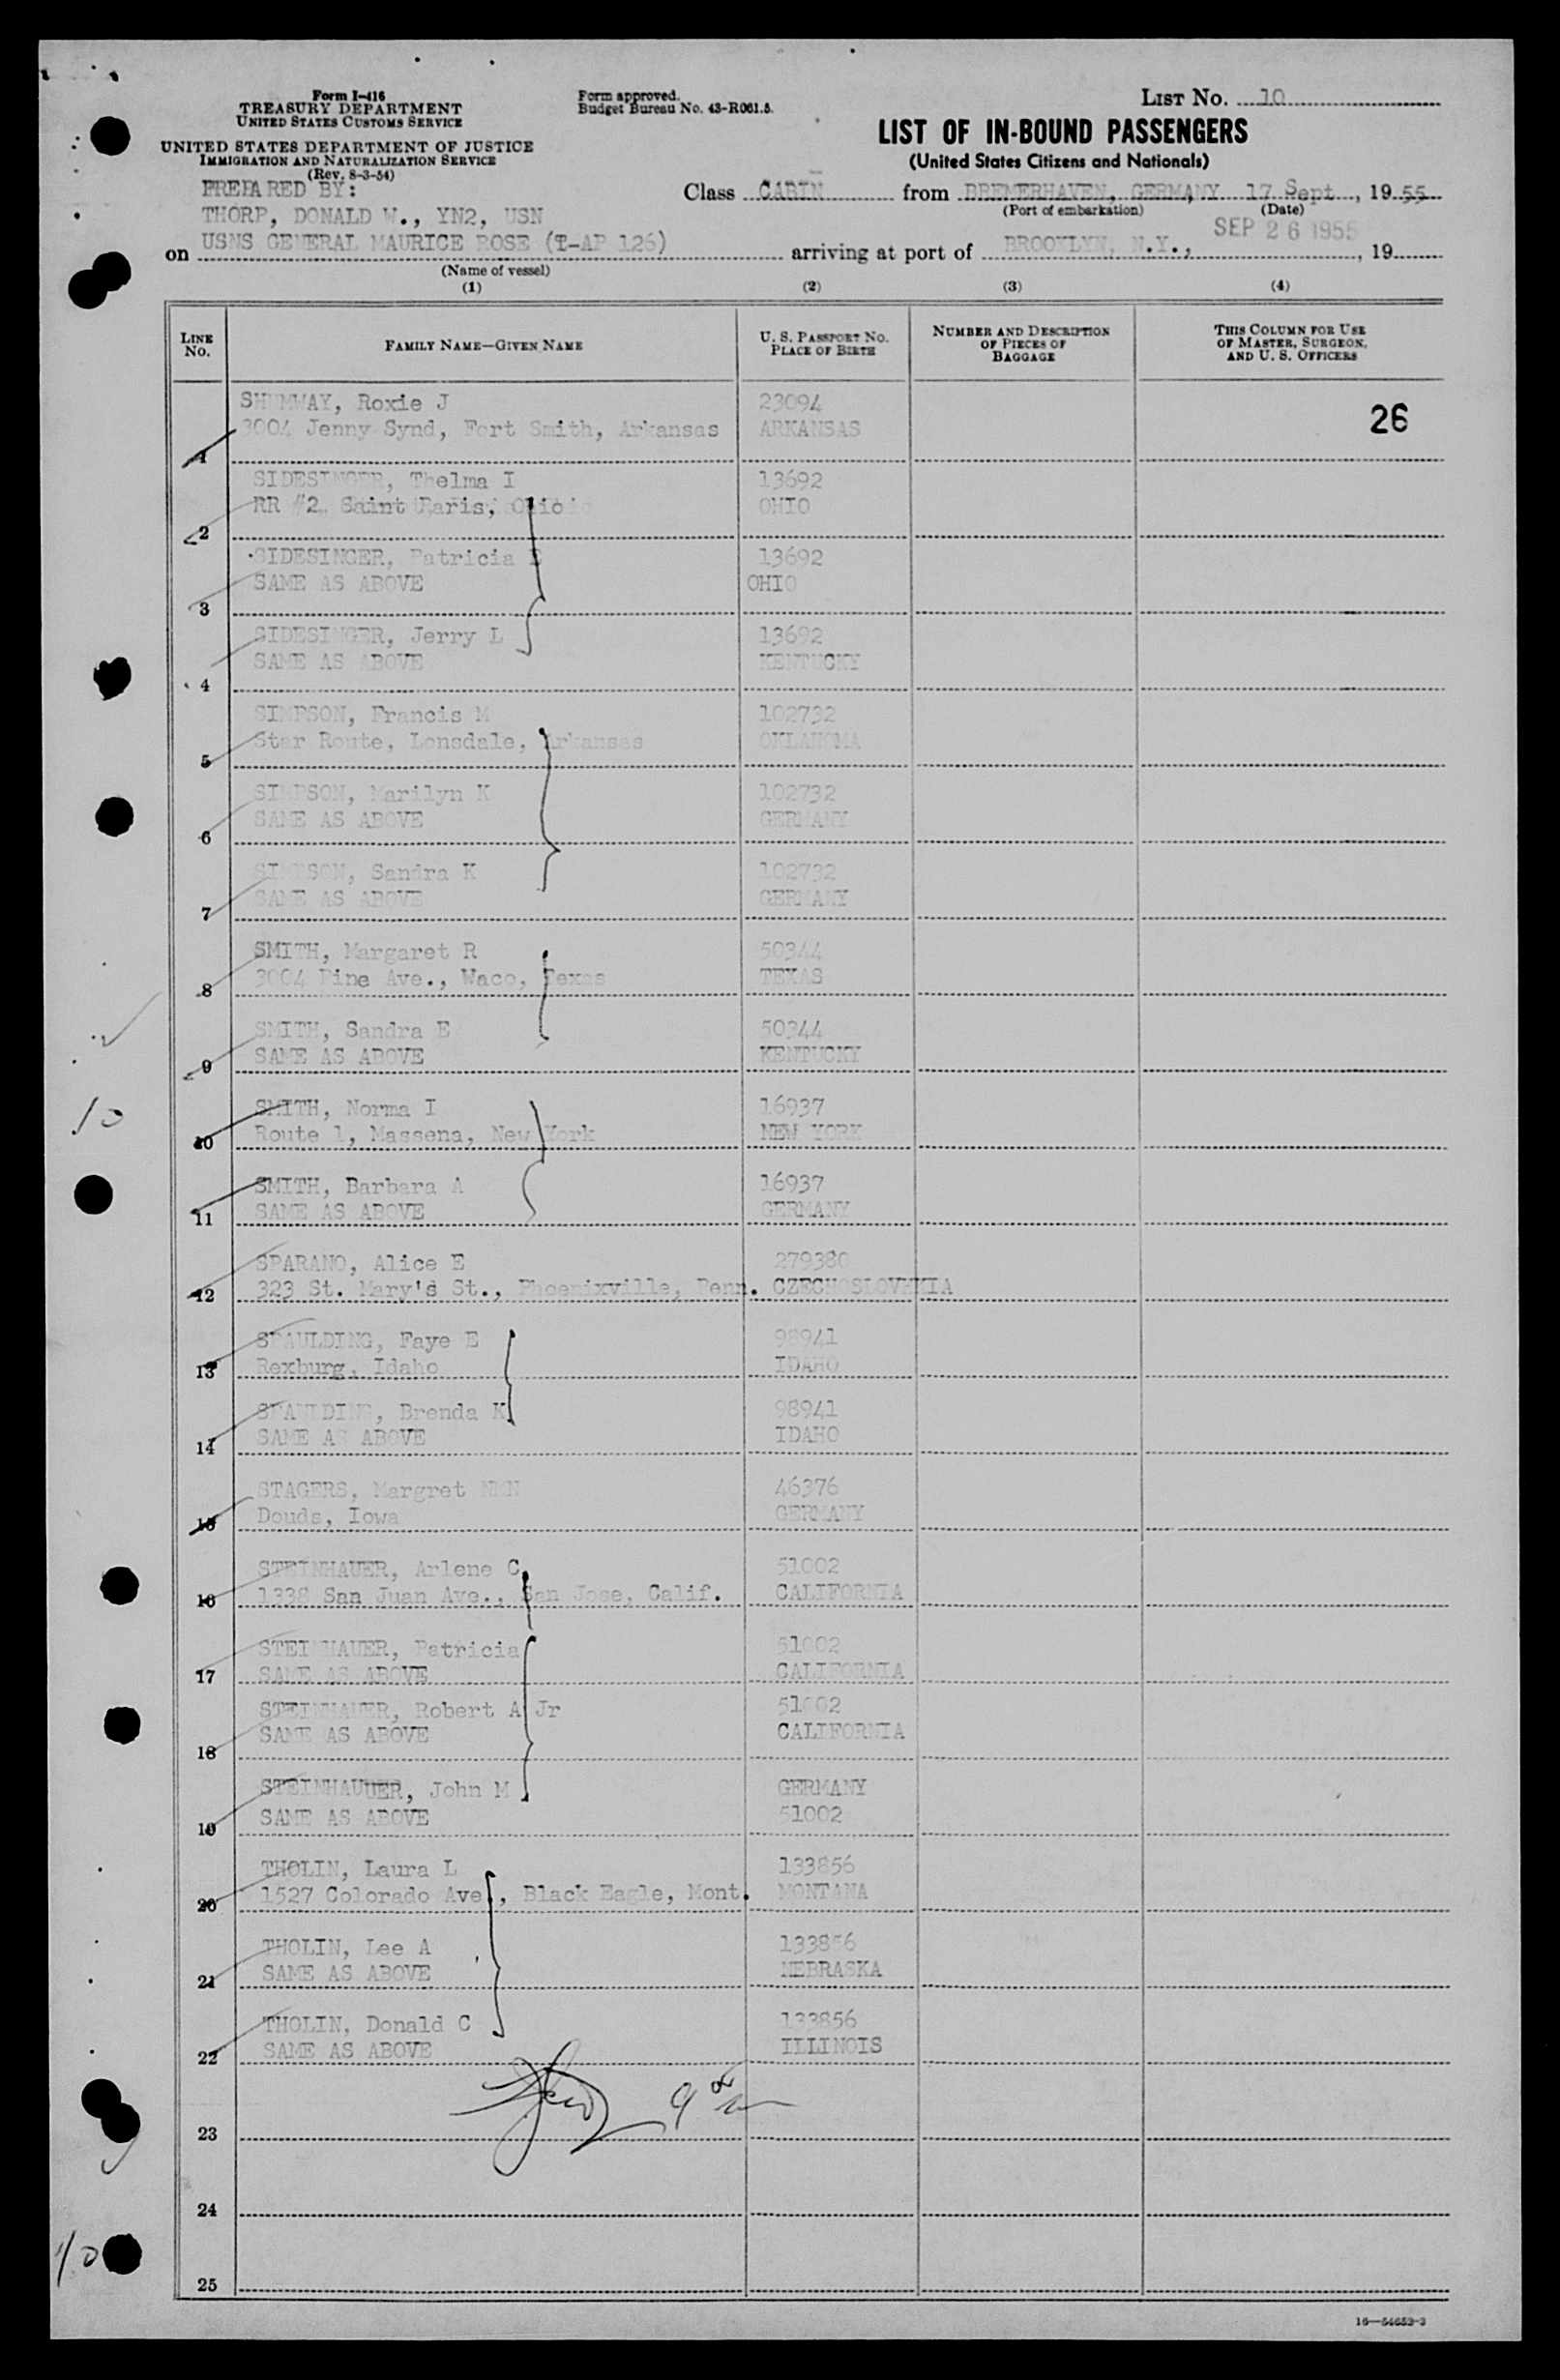 Form I-416
TREASURY DEPARTMENT
UNITED STATES CUSTOMS SERVICE
UNITED STATES DEPARTMENT OF JUSTICE
IMMIGRATION AND NATURALIZATION SERVICE
(Rev. 8-3-54)
Form approved.
Budget Bureau No. 43-R061.5.
LIST No. 10
LIST OF IN-BOUND PASSENGERS
(United States Citizens and Nationals)
PREPARED BY:
THORP, DONALD W., YN2, USN
Class CABIN from BREMERHAVEN, GERMANY 17 Sept, 1955
(Port of embarkation) (Date)
on USNS GENERAL MAURICE ROSE (T-AP 126) arriving at port of BROOKLYN, N.Y., SEP 26 1955, 19
(Name of vessel)
(1) (2) (3) (4)
LINE No. FAMILY NAME—GIVEN NAME U. S. PASSPORT NO. PLACE OF BIRTH NUMBER AND DESCRIPTION OF PIECES OF BAGGAGE THIS COLUMN FOR USE OF MASTER, SURGEON, AND U. S. OFFICERS
SHUMWAY, Roxie J 23094 26
1 3004 Jenny Synd, Fort Smith, Arkansas ARKANSAS
SIDESINGER, Thelma I 13692
2 RR #2 Saint Paris, Ohio OHIO
SIDESINGER, Patricia E 13692
3 SAME AS ABOVE OHIO
SIDESINGER, Jerry L 13692
4 SAME AS ABOVE KENTUCKY
SIMPSON, Francis M 102732
5 Star Route, Lonsdale, Arkansas OKLAHOMA
SIMPSON, Marilyn K 102732
6 SAME AS ABOVE GERMANY
SIMPSON, Sandra K 102732
7 SAME AS ABOVE GERMANY
SMITH, Margaret R 50344
8 3004 Pine Ave., Waco, Texas TEXAS
SMITH, Sandra E 50344
9 SAME AS ABOVE KENTUCKY
10
SMITH, Norma I 16937
10 Route 1, Massena, New York NEW YORK
SMITH, Barbara A 16937
11 SAME AS ABOVE GERMANY
SPARANO, Alice E 279380
12 323 St. Mary'd St., Phoenixville, Penn. CZECHOSLOVAKIA
SPAULDING, Faye E 98941
13 Rexburg, Idaho IDAHO
SPAULDING, Brenda K 98941
14 SAME AS ABOVE IDAHO
STAGERS, Margret NMN 46376
15 Douds, Iowa GERMANY
STEINHAUER, Arlene C 51002
16 1338 San Juan Ave., San Jose, Calif. CALIFORNIA
STEINHAUER, Patricia 51002
17 SAME AS ABOVE CALIFORNIA
STEINHAUER, Robert A Jr 51002
18 SAME AS ABOVE CALIFORNIA
STEINHAUUER, John M GERMANY
19 SAME AS ABOVE 51002
THOLIN, Laura L 133856
20 1527 Colorado Ave., Black Eagle, Mont. MONTANA
THOLIN, Lee A 133856
21 SAME AS ABOVE NEBRASKA
THOLIN, Donald C 133856
22 SAME AS ABOVE ILLINOIS
23
24
10
25
16—54652-3